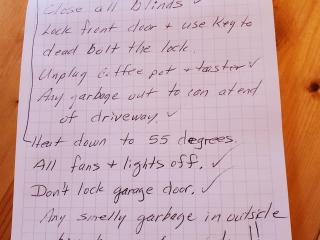 Close all blinds ✓
Lock front door + use key to
dead bolt the lock.
Unplug coffee pot + toaster ✓
Any garbage out to can at end
of driveway. ✓
Heat down to 55 degrees.
All fans + lights off. ✓
Don't lock garage door. ✓
Any smelly garbage in outside